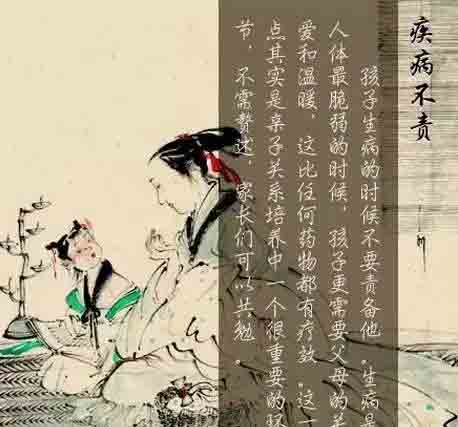 疾病不责
孩子生病的时候不要责备他.生病是
人体最脆弱的时候,孩子更需要父母的关
爱和温暖,这比任何药物都有疗效.这一
点其实是亲子关系培养中一个很重要的环
节,不需赘述,家长们可以共勉.